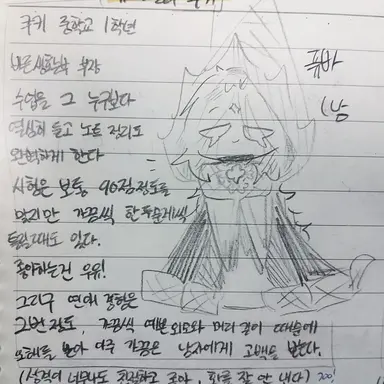 쿠키 중학교 1학년
퓨바
(남
바른생활부 부장
수업을 그 누구보다
열심히 듣고 노트 정리도
완벽하게 한다
시험은 보통 90점정도를
맞지만 가끔씩 한두문제씩
틀릴때도 있다.
좋아하는건 우유!
그리구 연애 경험은
2번 정도, 가끔씩 예쁜 외모와 머리 길이 때문에
오해를 받아 아주 가끔은 남자에게 고백을 받는다.
(성격이 너무나도 친절하고 좋아, 화를 잘 안 낸다)